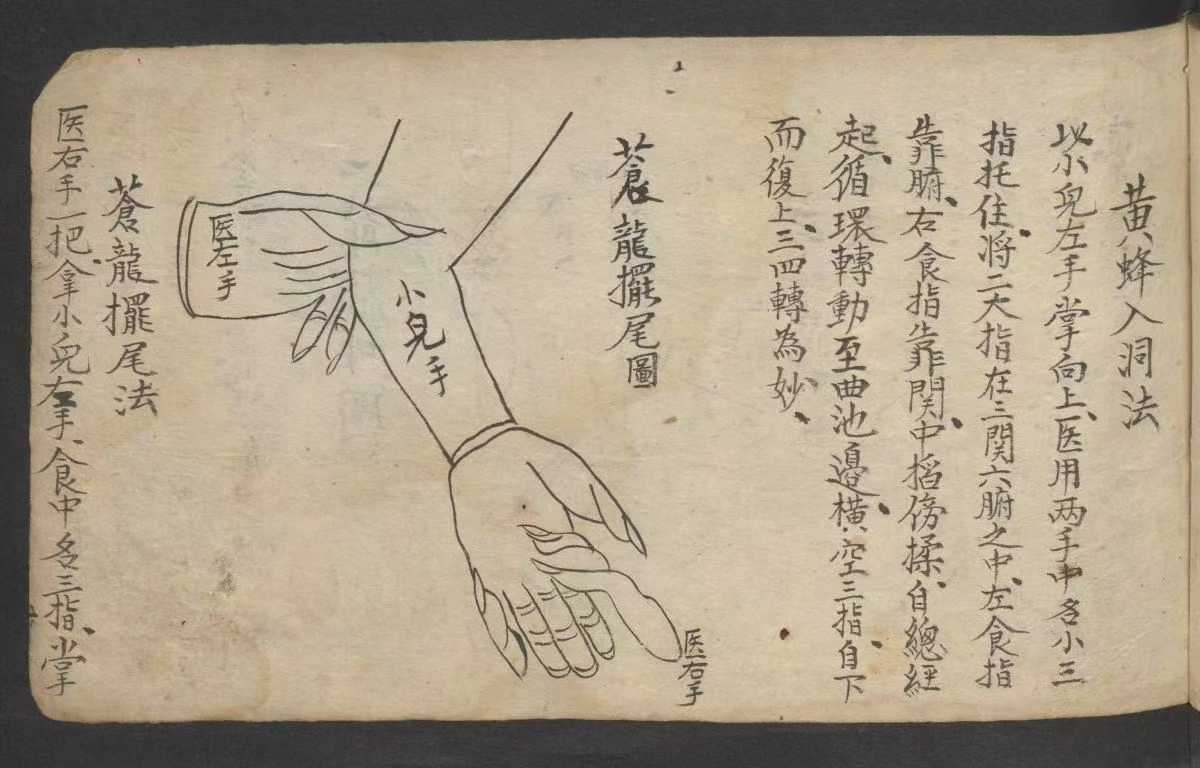 黄蜂入洞法
以小兒左手掌向上、医用两手中名小三
指托住、將二大指在三関六腑之中、左食指
靠腑、右食指靠関、中掐傍揉、自總經
起、循環轉動至曲池邉、横空三指、自下
而復上、三四轉為妙、
蒼龍擺尾圖
医右手
小兒手
医左手
蒼龍擺尾法
医右手一把、拿小兒左手、食中名三指、掌